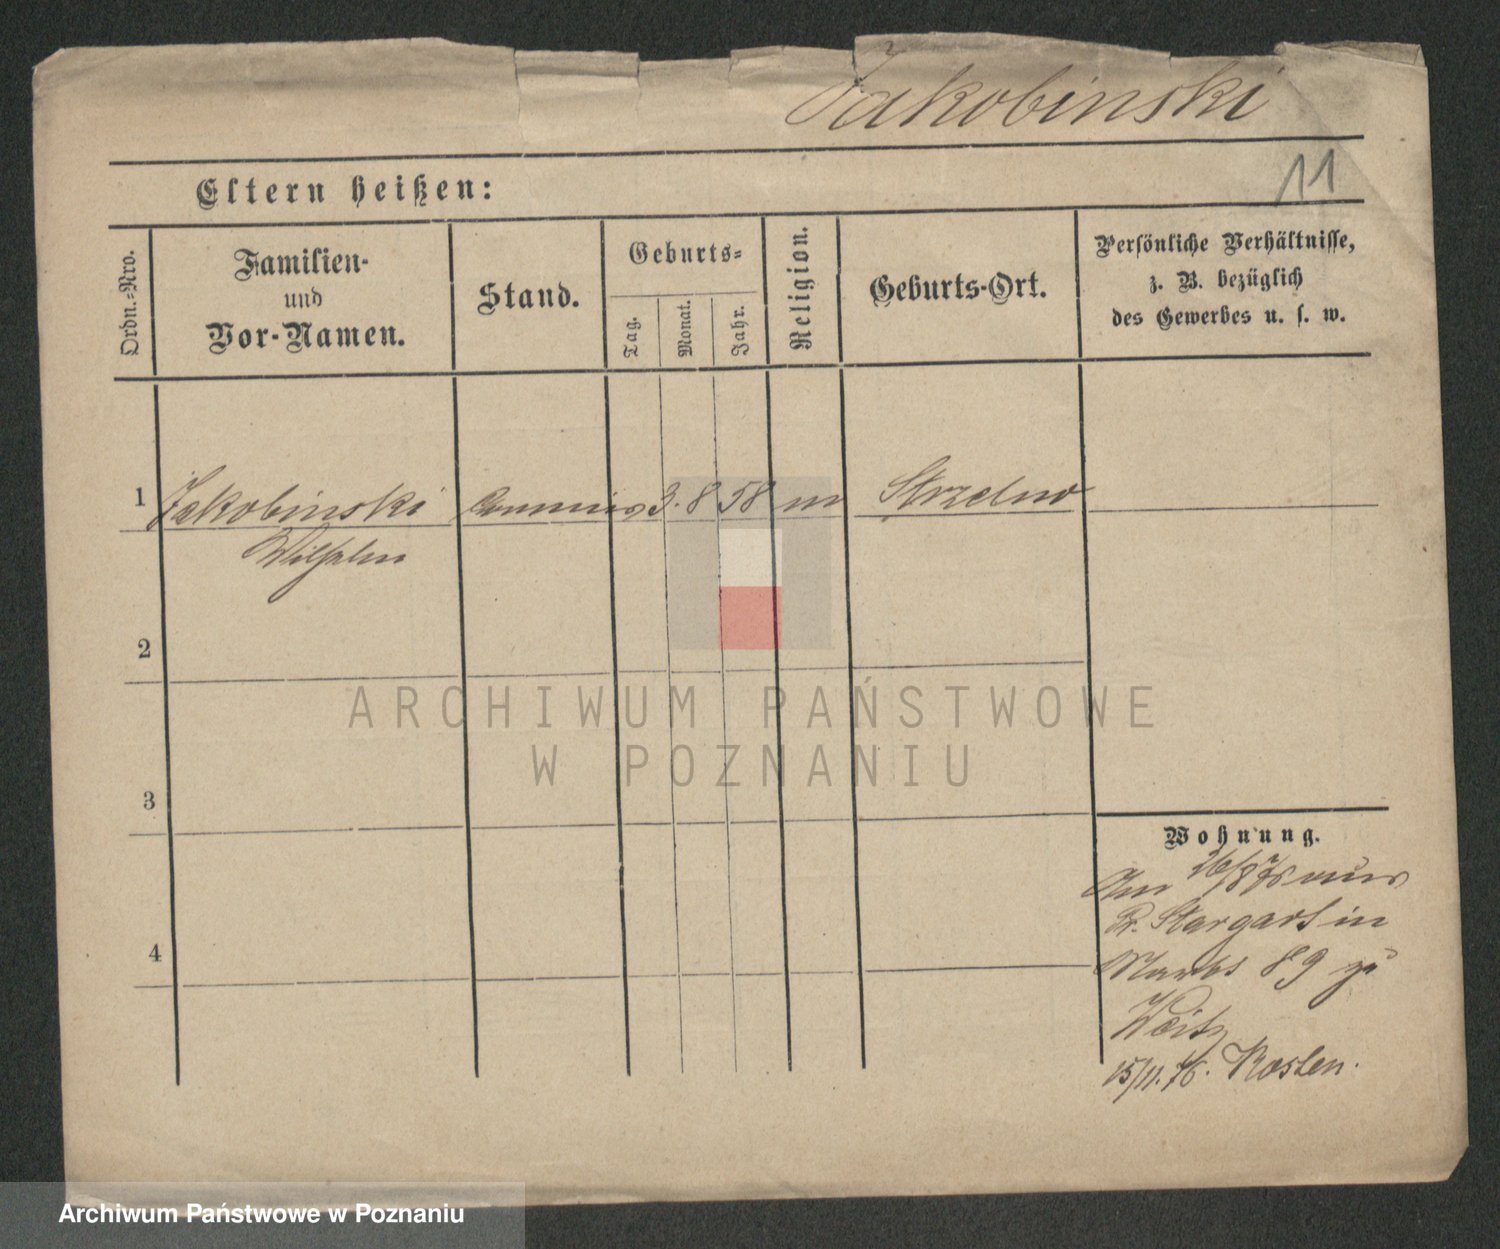 Jakobinski
11
Eltern heißen:
Ordn.-Nro.
Familien-
und
Vor-Namen.
Stand.
Geburts-
Tag.
Monat.
Jahr.
Religion.
Geburts-Ort.
Persönliche Verhältnisse,
z. B. bezüglich
des Gewerbes u. s. w.
1 Jakobinski Commis 3. 8 58 m Strzelno
Wilhelm
2
3
4
Wohnung.
Am 26/8 76 aus
Pr. Stargard in
Markt 89 zu
15/11. 76. Kosten.
ARCHIWUM PAŃSTWOWE
W POZNANIU
Archiwum Państwowe w Poznaniu